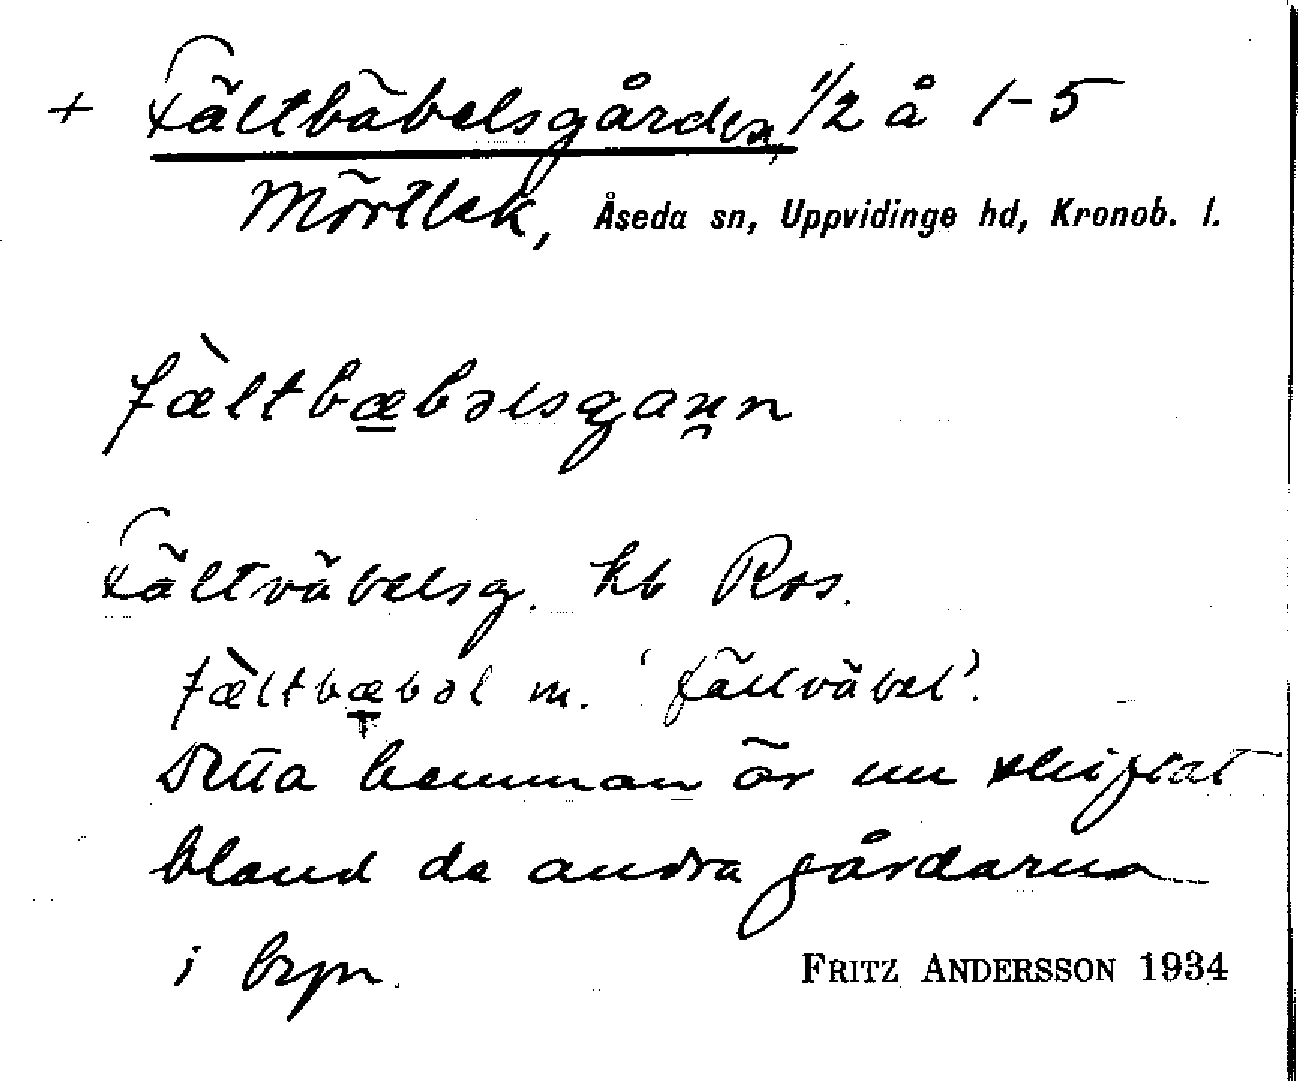 + Fältbäbelsgården, 1/2 å 1-5
Mörtlek, Åseda sn, Uppvidinge hd, Kronob. l.
fæ̀ltbæ̲bəlsgaṉn
Fältväbelsg. hb Ros.
fæ̀ltbæ̲bəl m. 'fältväbel'.
Detta hemman är nu skiftat
bland de andra gårdarna
i byn.
FRITZ ANDERSSON 1934